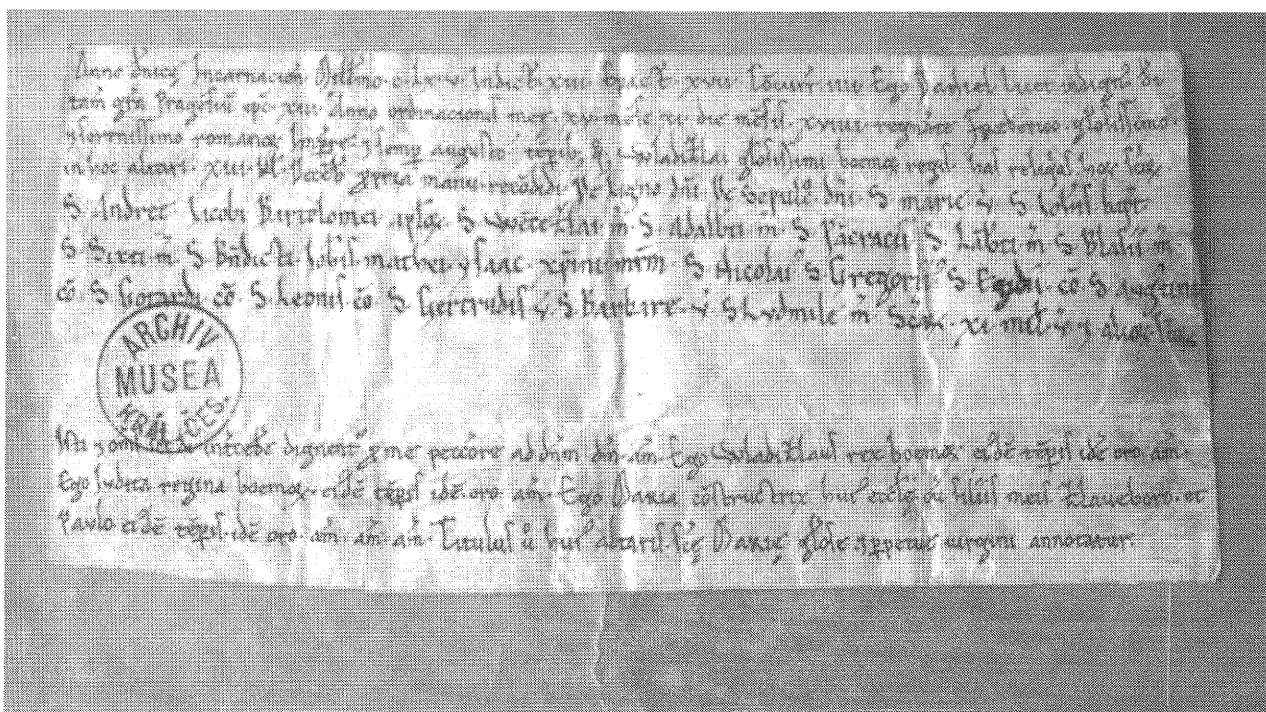 Anno dnicę Incarnacion Millmo c lxv Indict xiii Epact xvii Concurr iiii Ego Daniel licet indign di
tam gra Pragensiū epc xvii Anno ordinacionis mee xvi mense xi die mēsis xviiii regnāte Frederico glosissimo
serenissimo romanoꝝ impre semp augusto tēporibꝫ Wladizlai glosissimi boemoꝝ regis has reliqias
in hoc altari xiii kł Deceb ppria manu recōdidi De ligno dni De sepulc dni S marie v S Iohis bapt
S Andree Iacobi Bartolomei aplоꝝ S Wēcezlai m S Adalbti m S Pācracii S Lābti m S Blasii m
S Sixti m S Bndicti Iohis mathei ysaac xpini mrm S Nicolai S Gregorii S Egidii cō S
cō S Gotardi cō S Leonis cō S Gertrudis v S Barbare v S Ludmile m Scaꝝ xi mil v
ARCHIV
MUSEA
KRÁL. ČES.
oms sci intcede dignent p me peccore ad dnm dm am Ego Wladizlaus rex boemoꝝ eisdē tēpis idē oro am
Ego Iudita regina boemoꝝ eisdē tēpis idē oro am Ego Maria cōstructrix hui ecclę cū filiis meis et
Pavlo eisdē tēpis idē oro am am am Titulus u hui altaris scę Marię glose ppetue virgini annotatur